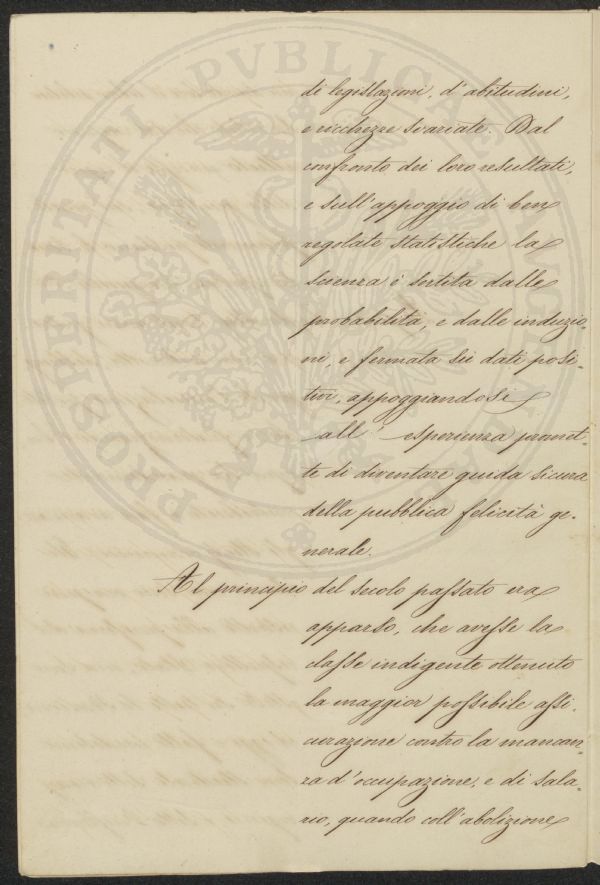 PROSPERITATI PVBLICAE AVGENDAE
di legislazioni, d'abitudini,
e ricchezze svariate. Dal
confronto dei loro resultati,
e sull'appoggio di ben
regolate statistiche la
scienza è sortita dalle
probabilità, e dalle induzio-
ni, e fermata sù dati posi-
tivi, appoggiandosi
all'esperienza promet-
te di diventare guida sicura
della pubblica felicità ge-
nerale.
Al principio del secolo passato era
apparso, che avesse la
classe indigente ottenuto
la maggior possibile assi-
curazione contro la mancan-
za d'occupazione, e di sala-
rio, quando coll'abolizione